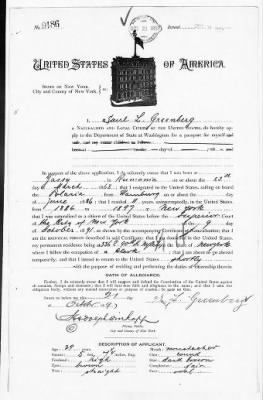 No. 9486 Issued
UNITED STATES OF AMERICA.
STATE OF NEW YORK,
City and County of New York,
I, Saul L. Greenberg
A NATURALIZED AND LOYAL CITIZEN OF THE UNITED STATES, do hereby apply
to the Department of State at Washington for a passport for myself
In support of the above application, I do solemnly swear that I was born at
Jassy in Rumania on or about the 23
day of March, 1868; that I emigrated to the United States, sailing on board
the Polaria from Hamburg on or about the
day of June 1886; that I resided 11 years, uninterruptedly, in the United States, from
1886 to 1897 at New York
that I was naturalized as a citizen of the United States before the Superior
Court of the City of New York on the 9 day of
October, 1891, as shown by the accompanying Certificate of Naturalization; that I am
the identical person described in said Certificate; that I am domiciled in the United States,
my permanent residence being at in the State of New York
where I follow the occupation of a Clerk; that I am about to go abroad
temporarily; and that I intend to return to the United States shortly
with the purpose of residing and performing the duties of citizenship therein.
OATH OF ALLEGIANCE.
Further, I do solemnly swear that I will support and defend the Constitution of the United States against
all enemies, foreign and domestic; that I will bear true faith and allegiance to the same; and that I take this
obligation freely, without any mental reservation or purpose of evasion: So help me God.
Sworn to before me this 21 day
of October 1897
S. L. Greenberg
Notary Public.
DESCRIPTION OF APPLICANT.
Age: 29 years. Mouth: moustache
Stature: 5 feet inches, Eng. Chin: round
Forehead: high Hair: dark brown
Eyes: brown Complexion: fair
Nose: straight Face: oval